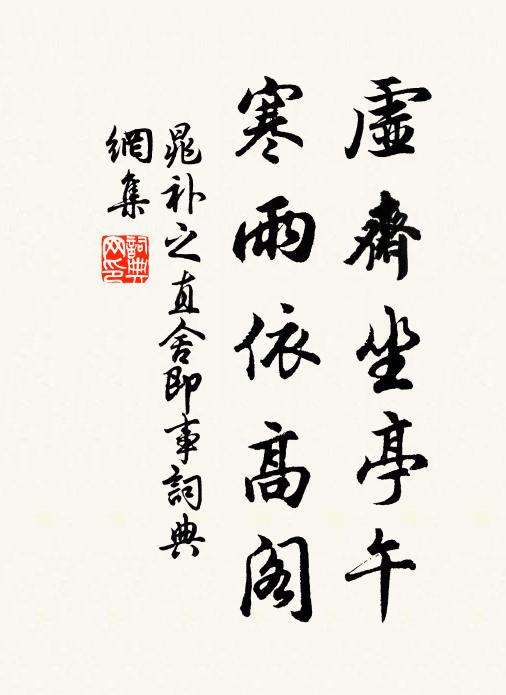 虛齋坐亭午
寒雨依高閣
晁补之直舍即事詞典
網集
詞典网印